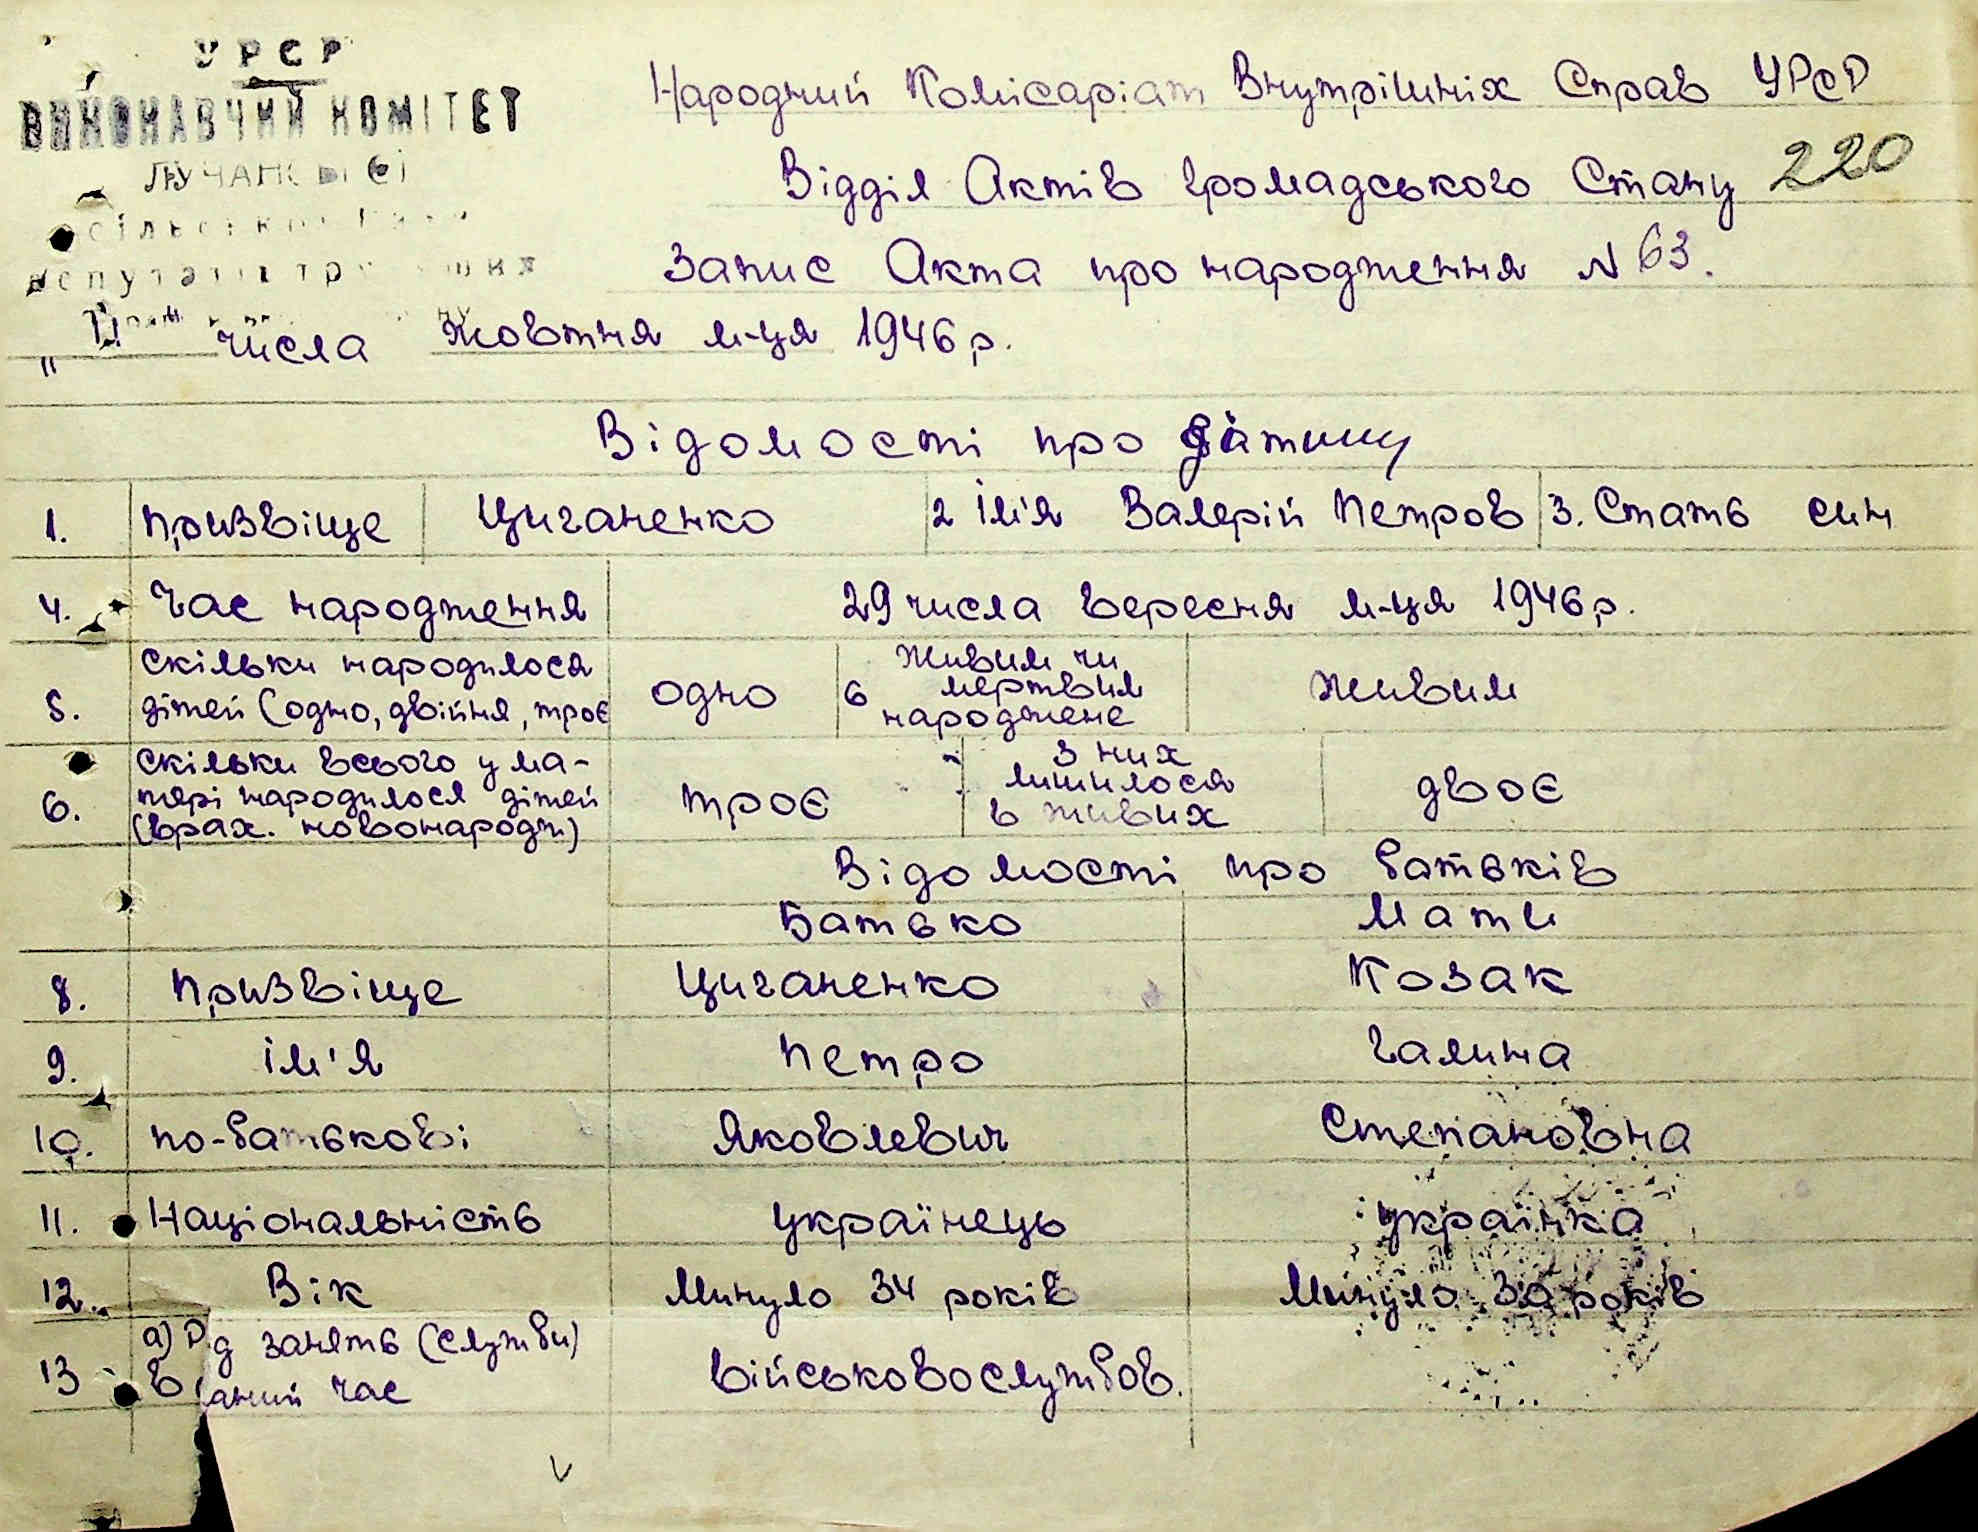 УРСР
ВИКОНАВЧИЙ КОМІТЕТ
ЛУЧАНСЬКОЇ
сільської
депутатів
Народний Комісаріат Внутрішніх Справ УРСР
220
Відділ Актів Громадського Стану
Запис Акта про народження N 63.
" 11 числа жовтня м-ця 1946 р.
Відомості про дитину
1. Призвіще Циганенко 2 Ім'я Валерій Петров 3. Стать син
4. Час народження 29 числа вересня м-ця 1946 р.
5. скільки народилося дітей (одно, двійня, троє одно 6 живим чи мертвим народжене живим
6. скільки всього у матері народилося дітей (врах. новонародж) троє з них лишилося в живих двоє
Відомості про батьків
Батько Мати
8. Призвіще Циганенко Козак
9. ім'я Петро Галина
10. по-батькові Яковлевич Степановна
11. Національність українець українка
12. Вік Минуло 34 років Минуло 30 років
13 а) Рід занять (служби) військовослужбов.
в даний час